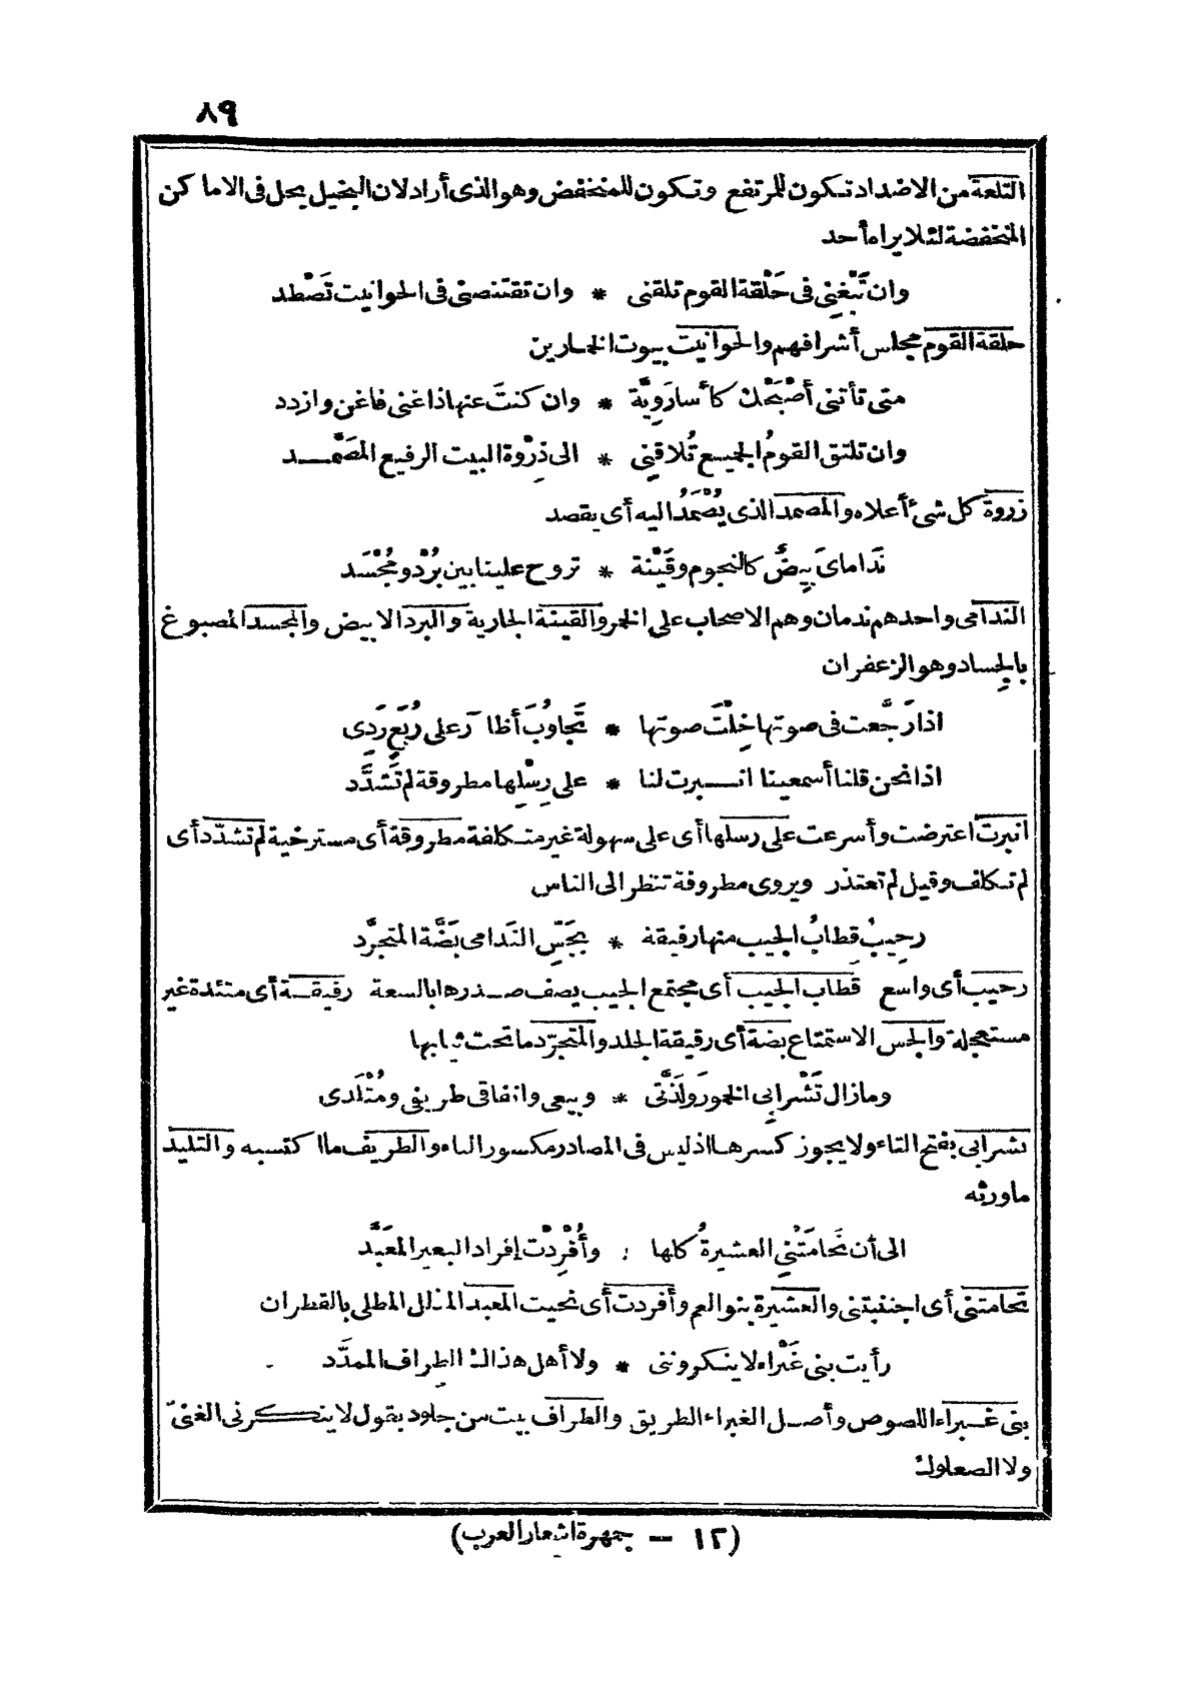 ٨٩
التلعة من الاضداد تكون للمرتفع وتكون للمنخفض وهو الذى أراد لان البخيل يحل فى الاماكن
المنخفضة لئلا يراه أحد
وان تَبْغِنِى فى حَلْقة القوم تلقنى * وان تقتنصنى فى الحوانيت تَصْطد
حلقة القوم مجلس أشرافهم والحوانيت بيوت الخمارين
متى تأتنى أصْبَحْك كأسا رَوِيَّة * وان كنتَ عنها ذا غنى فاغن وازدد
وان تلتق القومُ الجميع تُلاقِنِى * الى ذِرْوة البيت الرفيع المصَمَّد
زروة كل شئ أعلاه والمصمد الذى يُصْمَدُ اليه أى يقصد
نَداماىَ بِيضٌ كالنجوم وقَيْنة * تروح علينا بين بُرْد ومُجْسَد
الندامى واحدهم ندمان وهم الاصحاب على الخمر والقينة الجارية والبرد الابيض والمجسد المصبوغ
بالجِساد وهو الزعفران
اذا رَجَّعت فى صوتها خِلْتَ صوتها * تَجاوُبَ أظآر على رُبَعٍ رَدِى
اذا نحن قلنا أسمعينا انبرت لنا * على رِسْلِها مطروقة لم تَشَدَّد
انبرت اعترضت وأسرعت على رسلها أى على سهولة غير متكلفة مطروقة أى مسترخية لم تشدّد أى
لم تكلف وقيل لم تعتذر ويروى مطروفة تنظر الى الناس
رحيبُ قِطابُ الجيب منها رفيقة * بجَسِّ النَدامى بَضَّة المتجرَّد
رحيب أى واسع قطاب الجيب أى مجتمع الجيب يصف صدرها بالسعة رفيقة أى متئدة غير
مستعجلة والجس الاستمتاع بضة أى رقيقة الجلد والمتجرّد ما تحت ثيابها
ومازال تَشْرابِى الخمورَ ولَذَّتى * وبيعى وانفاقى طريفى ومُتْلَدى
تشرابى بفتح التاء ولا يجوز كسرها اذ ليس فى المصادر مكسور التاء والطريف ما اكتسبه والتليد
ماورثه
الى أن تَحامَتْنِى العشيرةُ كلها : وأُفْرِدْت إفراد البعير المعَبَّد
تحامتنى أى اجتنبتنى والعشيرة بنو العم وأفردت أى نحيت المعبد المذلل المطلى بالقطران
رأيت بنى غَبْراء لا ينكروننى * ولا أهل هذاك الطِراف الممدَّد
بنى غبراء اللصوص وأصل الغبراء الطريق والطراف بيت من جلود يقول لا ينكرنى الغنىّ
ولا الصعاوك
(١٢ – جمهرة اشعار العرب)